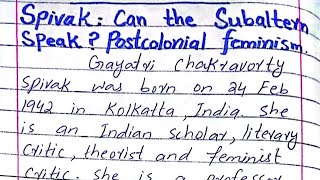 Spivak: Can the Subaltern
Speak? Postcolonial feminism
Gayatri Chakravorty
Spivak was born on 24 Feb
1942 in Kolkatta, India. She
is an Indian scholar, literary
critic, theorist and feminist
critic. She is a professor